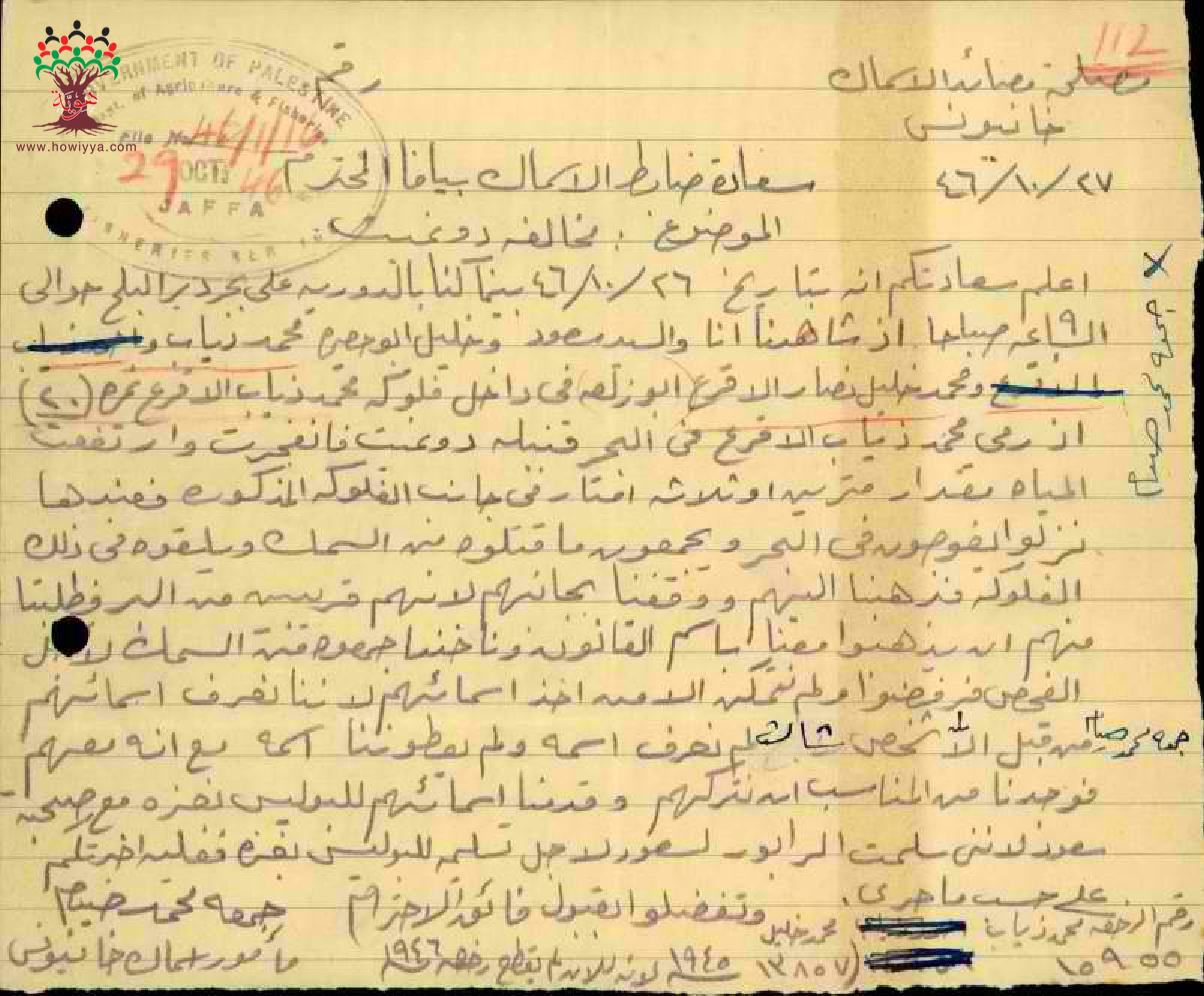 112
مصلحة مصائد الاسماك
خانيونس
رقم
GOVERNMENT OF PALESTINE
Dept. of Agriculture & Fisheries
File No. 46/1/10
29 OCT 46
JAFFA
www.howiyya.com
٢٧/١٠/٤٦ سعادة ضابط الاسماك بيافا المحترم
الموضوع : مخالفه دونمنت
اعلم سعادتكم انه بتاريخ ٢٦/١٠/٤٦ بينما كنا بالدوريه على بحر دير البلح حوالى
الساعه ٩ صباحا اذ شاهدنا انا والسيد سعود وخليل ابو حصيره محمد ذياب و
ومحمد خليل نصار الاقرع فى داخل فلوكه محمد ذياب الاقرع نمره (٢٠)
اذ رمى محمد ذياب الاقرع فى البحر قنبله دونمنت فانفجرت وارتفعت
المياه مقدار مترين او ثلاثه امتار فى جانب الفلوكه المذكوره فعندها
نزلوا يغوصون فى البحر و يجمعون ما قتلوه من السمك ويلقوه فى ذلك
الفلوكه فذهبنا اليهم ووقفنا بجانبهم لانهم قريبين من البر وطلبنا
منهم ان يذهبوا معنا باسم القانون وناخذ ما جمعوه من السمك لاجل
الفحص فرفضوا ولم نتمكن الا من اخذ اسمائهم لاننا نعرف اسمائهم
من قبل الا شخص ثالث لم نعرف اسمه ولم يعطوننا اسمه مع انه معهم
جمعه محمد صيام
فوجدنا من المناسب ان نتركهم وقدمنا اسمائهم للبوليس بغزه مع
سعود لاننى سلمت الرابور لسعود لاجل تسليمه للبوليس بغزه فعليه اخبرتكم
على حسب ما جرى.
وتفضلوا بقبول فائق الاحترام جمعه محمد صيام
مأمور اسماك خانيونس
رقم الرخصه محمد ذياب ١٥٩٥٥
محمد خليل (١٣٨٥٧ ١٩٤٥ لانه للان لم يقطع رخصه ١٩٤٦
x جمعه محمد صيام